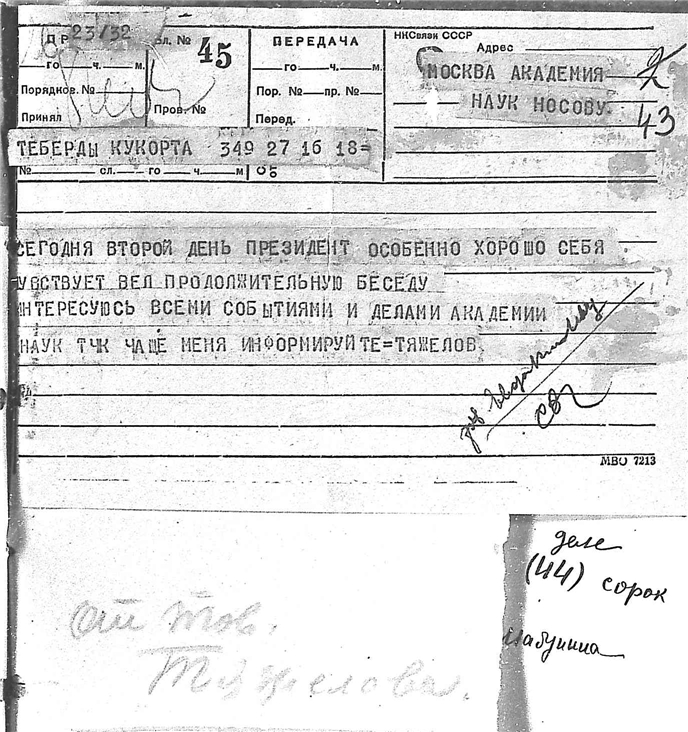 ПР 23/32
Бл. № 45
ПЕРЕДАЧА
НКСвязи СССР
Адрес
го ч. м.
го ч. м.
МОСКВА АКАДЕМИЯ
НАУК НОСОВУ.
43
Порядков. №
Пор. № пр. №
Принял
Пров. №
Перед.
ТЕБЕРДЫ КУКОРТА 349 27 16 18=
№ сл. го ч м
СЕГОДНЯ ВТОРОЙ ДЕНЬ ПРЕЗИДЕНТ ОСОБЕННО ХОРОШО СЕБЯ
УВСТВУЕТ ВЕЛ ПРОДОЛЖИТЕЛЬНУЮ БЕСЕДУ
ИНТЕРЕСУЮСЬ ВСЕМИ СОБЫТИЯМИ И ДЕЛАМИ АКАДЕМИИ
НАУК ТЧК ЧАЩЕ МЕНЯ ИНФОРМИРУЙТЕ=ТЯЖЕЛОВ
МВО 7213
деле
(44) сорок
От тов.
Тяжелова.